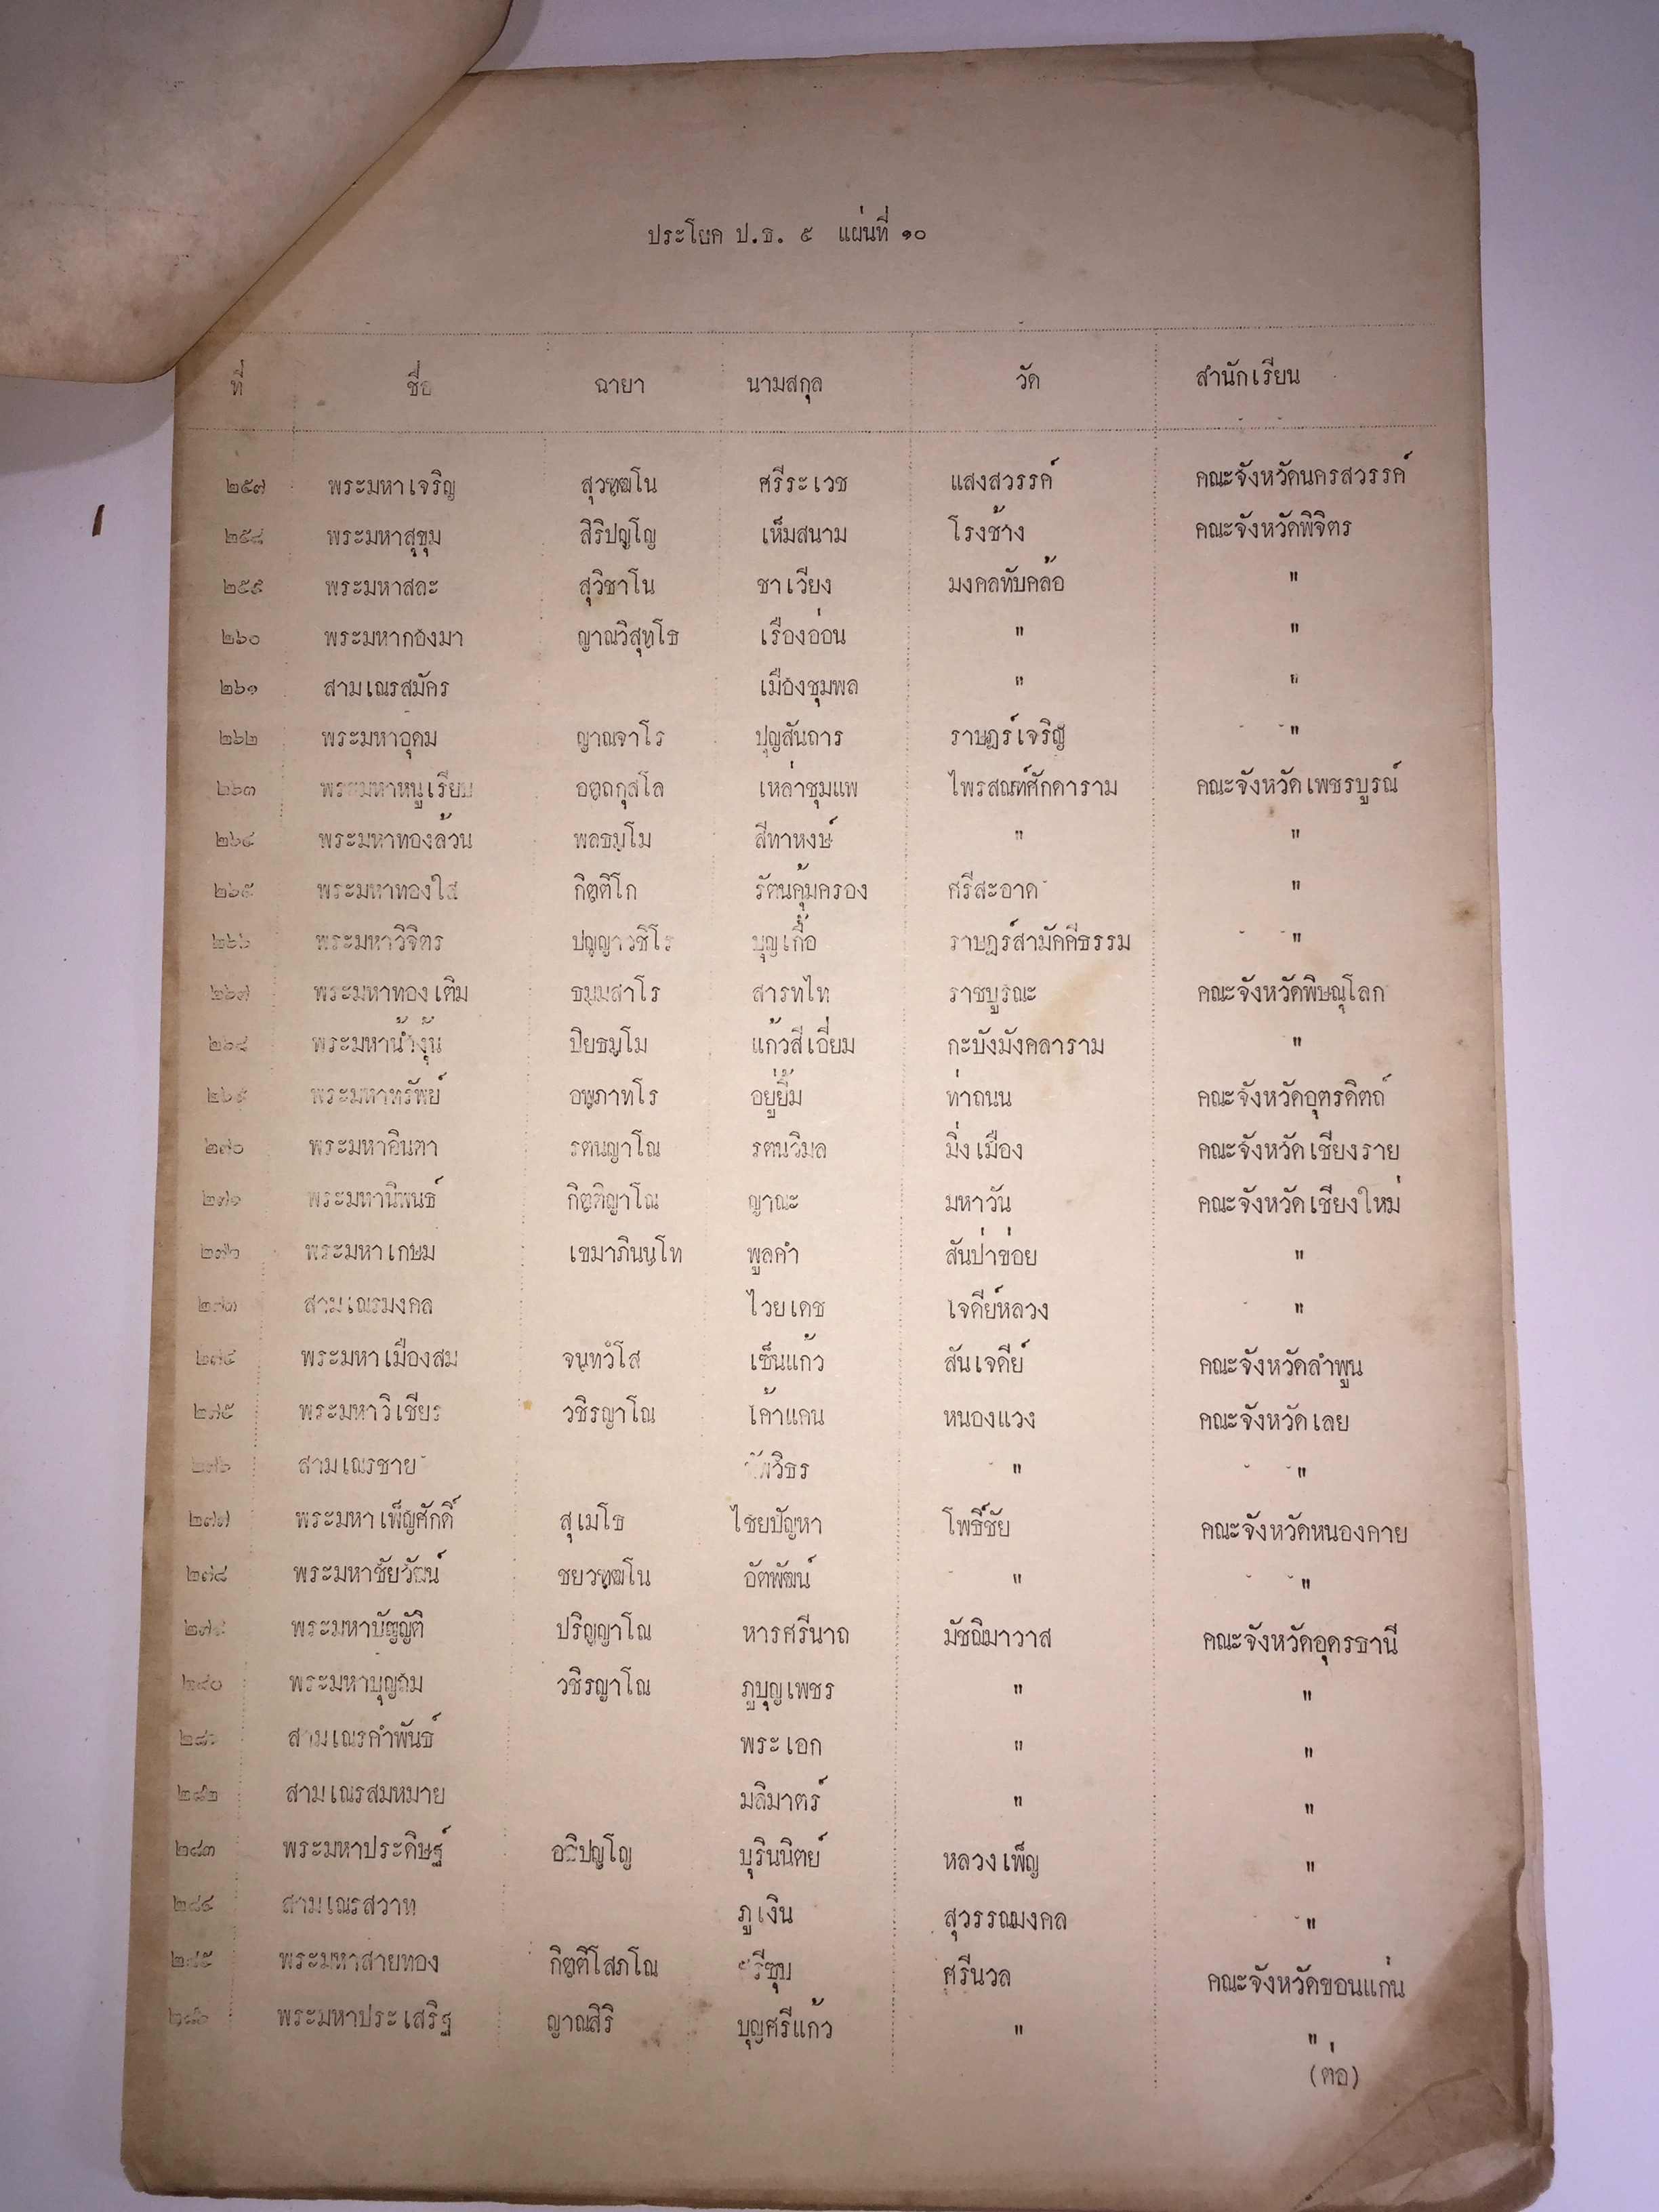 ประโยค ป.ธ. ๕ แผ่นที่ ๑๐
ที่ ชื่อ ฉายา นามสกุล วัด สำนักเรียน
๒๕๗ พระมหาเจริญ สุวฑฺฒโน ศรีระเวช แสงสวรรค์ คณะจังหวัดนครสวรรค์
๒๕๘ พระมหาสุขุม สิริปญฺโญ เห็มสนาม โรงช้าง คณะจังหวัดพิจิตร
๒๕๙ พระมหาสละ สุวิชาโน ชาเวียง มงคลทับคล้อ "
๒๖๐ พระมหากองมา ญาณวิสุทฺโธ เรืองอ่อน " "
๒๖๑ สามเณรสมัคร เมืองชุมพล " "
๒๖๒ พระมหาอุดม ญาณจาโร ปุญสันถาร ราษฎร์เจริญ "
๒๖๓ พระมหาหนูเรียม อตฺถกุสโล เหล่าชุมแพ ไพรสณฑ์ศักดาราม คณะจังหวัดเพชรบูรณ์
๒๖๔ พระมหาทองล้วน พลธมฺโม สีทาหงษ์ " "
๒๖๕ พระมหาทองใส กิตฺติโก รัตนคุ้มครอง ศรีสะอาด "
๒๖๖ พระมหาวิจิตร ปญฺญาวชิโร บุญเกื้อ ราษฎร์สามัคคีธรรม "
๒๖๗ พระมหาทองเติม ธมฺมสาโร สารทไท ราชบูรณะ คณะจังหวัดพิษณุโลก
๒๖๘ พระมหาน้ำงุ้น ปิยธมฺโม แก้วสีเอี่ยม กะบังมังคลาราม "
๒๖๙ พระมหาทรัพย์ อพฺภาทโร อยู่ยิ้ม ท่าถนน คณะจังหวัดอุตรดิตถ์
๒๗๐ พระมหาอินตา รตนญาโณ รตนวิมล มิ่งเมือง คณะจังหวัดเชียงราย
๒๗๑ พระมหานิพนธ์ กิตฺติญาโณ ญาณะ มหาวัน คณะจังหวัดเชียงใหม่
๒๗๒ พระมหาเกษม เขมาภินนฺโท พูลคำ สันป่าข่อย "
๒๗๓ สามเณรมงคล ไวยเดช เจดีย์หลวง "
๒๗๔ พระมหาเมืองสม จนฺทวํโส เซ็นแก้ว สันเจดีย์ คณะจังหวัดลำพูน
๒๗๕ พระมหาวิเชียร วชิรญาโณ เค้าแคน หนองแวง คณะจังหวัดเลย
๒๗๖ สามเณรชาย " "
๒๗๗ พระมหาเพ็ญศักดิ์ สุเมโธ ไชยปัญหา โพธิ์ชัย คณะจังหวัดหนองคาย
๒๗๘ พระมหาชัยวัฒน์ ชยวฑฺฒโน อัตพัฒน์ " "
๒๗๙ พระมหาบัญญัติ ปริญฺญาโณ หารศรีนาถ มัชฌิมาวาส คณะจังหวัดอุดรธานี
๒๘๐ พระมหาบุญถม วชิรญาโณ ภูบุญเพชร " "
๒๘๑ สามเณรคำพันธ์ พระเอก " "
๒๘๒ สามเณรสมหมาย มลิมาตร์ " "
๒๘๓ พระมหาประดิษฐ์ บุรินนิตย์ หลวงเพ็ญ "
๒๘๔ สามเณรสวาท ภูเงิน สุวรรณมงคล "
๒๘๕ พระมหาสายทอง กิตฺติโสภโณ ศรีนวล คณะจังหวัดขอนแก่น
๒๘๖ พระมหาประเสริฐ ญาณสิริ บุญศรีแก้ว " "
(ต่อ)